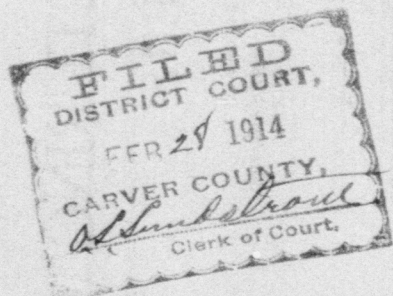 FILED
DISTRICT COURT,
FEB 28 1914
CARVER COUNTY,
Clerk of Court.